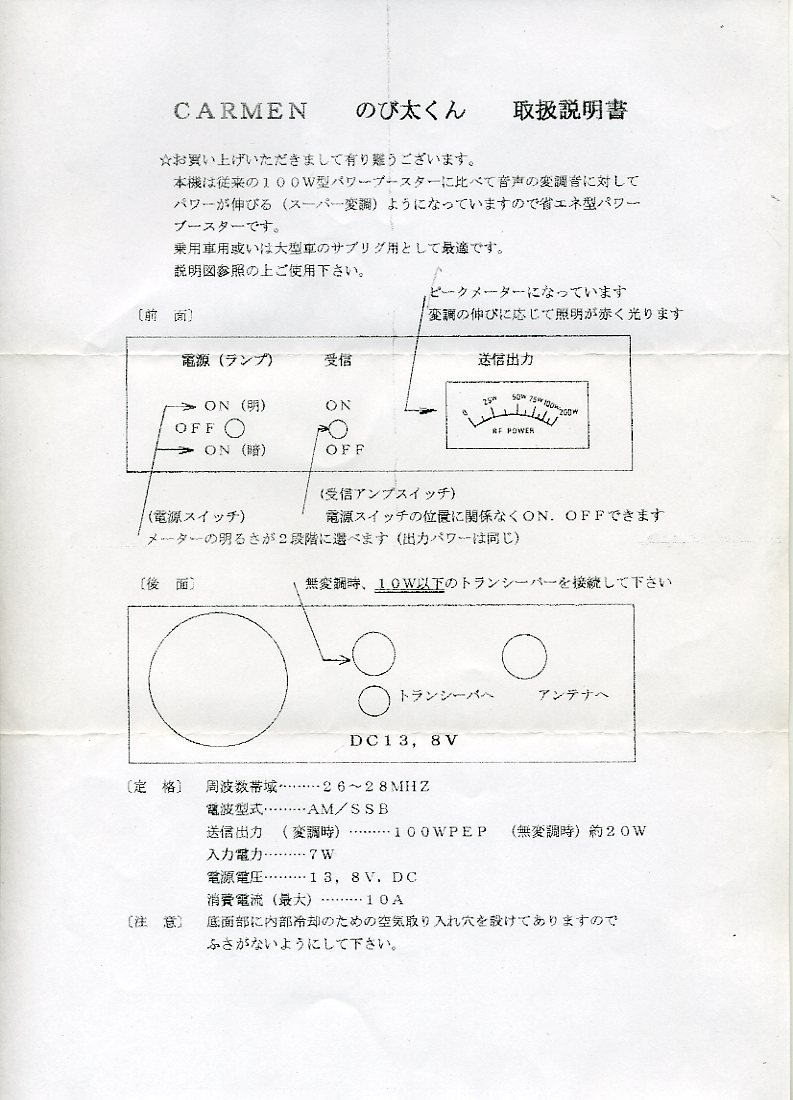 CARMEN のび太くん 取扱説明書
☆お買い上げいただきまして有り難うございます。
本機は従来の100W型パワーブースターに比べて音声の変調音に対して
パワーが伸びる(スーパー変調)ようになっていますので省エネ型パワー
ブースターです。
乗用車用或いは大型車のサブリグ用として最適です。
説明図参照の上ご使用下さい。
ピークメーターになっています
〔前 面〕
変調の伸びに応じて照明が赤く光ります
電源(ランプ) 受信 送信出力
ON(明) ON
OFF
ON(暗) OFF
0 25W 50W 75W 100W 200W
RF POWER
(受信アンプスイッチ)
(電源スイッチ) 電源スイッチの位置に関係なくON.OFFできます
メーターの明るさが2段階に選べます(出力パワーは同じ)
〔後 面〕 無変調時、10W以下のトランシーバーを接続して下さい
トランシーバへ アンテナへ
DC13,8V
〔定 格〕 周波数帯域………26~28MHZ
電波型式………AM/SSB
送信出力 (変調時)………100WPEP (無変調時)約20W
入力電力………7W
電源電圧………13,8V.DC
消費電流(最大)………10A
〔注 意〕 底面部に内部冷却のための空気取り入れ穴を設けてありますので
ふさがないようにして下さい。